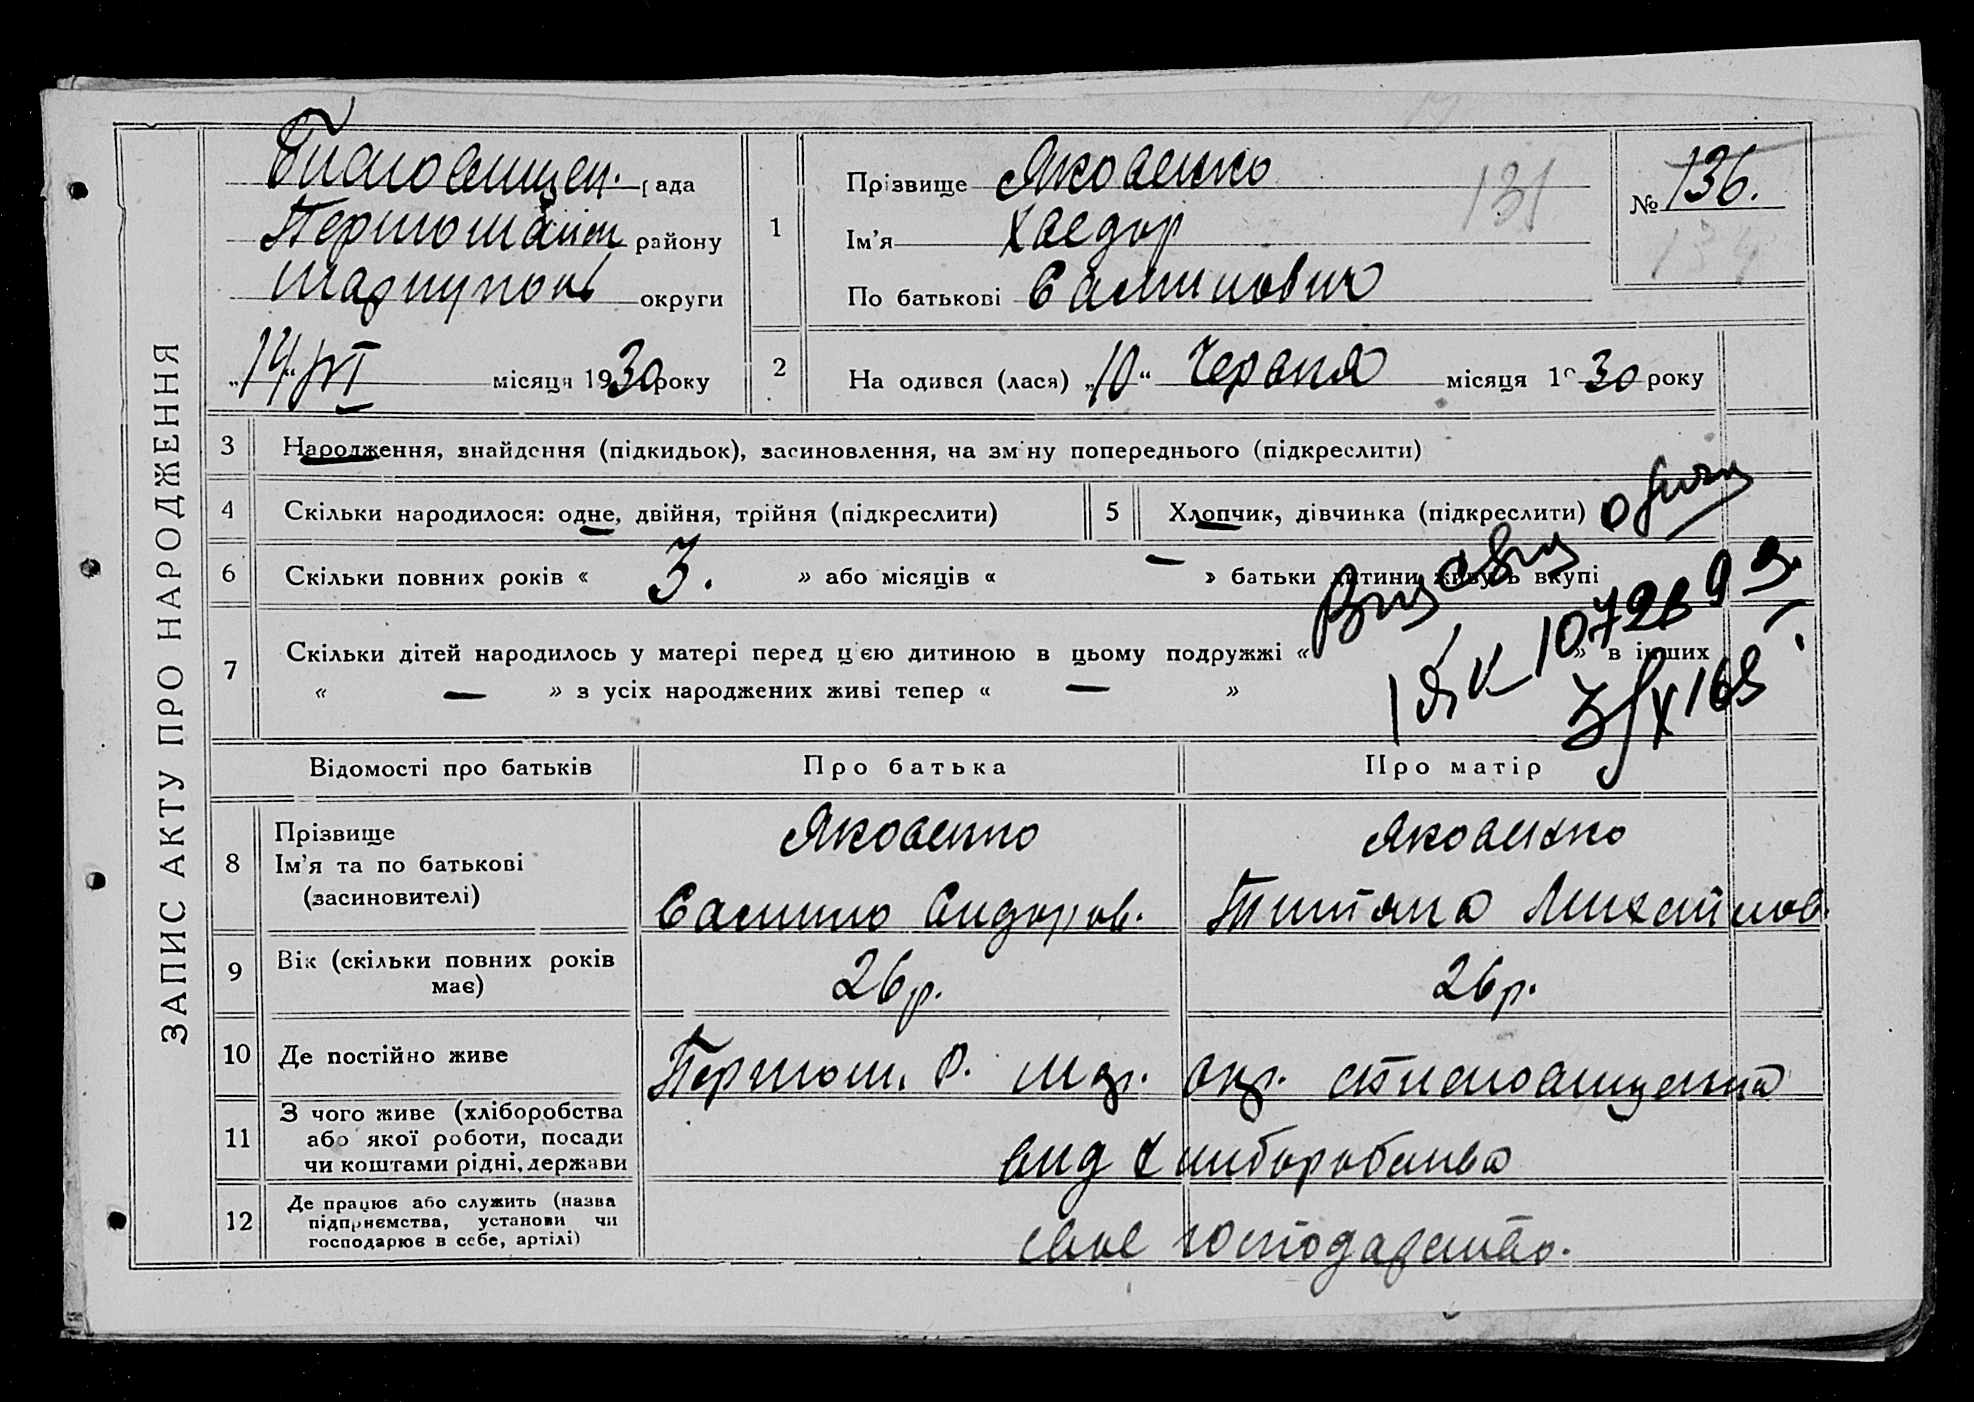 ЗАПИС АКТУ ПРО НАРОДЖЕННЯ
рада
району
округи
„14“ VI місяця 1930 року
1
Прізвище Яковенко
Ім'я Хведор
По батькові Самилович
№ 136.
131
134
2
На одився (лася) „10“ Червня місяця 19 30 року
3 Народження, знайдення (підкидьок), засиновлення, на зміну попереднього (підкреслити)
4 Скільки народилося: одне, двійня, трійня (підкреслити)
5 Хлопчик, дівчинка (підкреслити)
6 Скільки повних років « 3. » або місяців « — » батьки дитини живуть вкупі
7 Скільки дітей народилось у матері перед ц'єю дитиною в цьому подружжі « » в інших
« — » з усіх народжених живі тепер « — »
Відомості про батьків Про батька Про матір
8
Прізвище
Ім'я та по батькові
(засиновителі)
Яковенко
Самило Сидоров.
Яковенко
Титяна Михайлов.
9 Вік (скільки повних років
має)
26 р. 26 р.
10 Де постійно живе
Першом. Р. Мар. окр.
11
З чого живе (хліборобства
або якої роботи, посади
чи коштами рідні, держави
вид хлиборобства
12
Де працює або служить (назва
підприємства, установи чи
господарює в себе, артілі)
своє господарство.